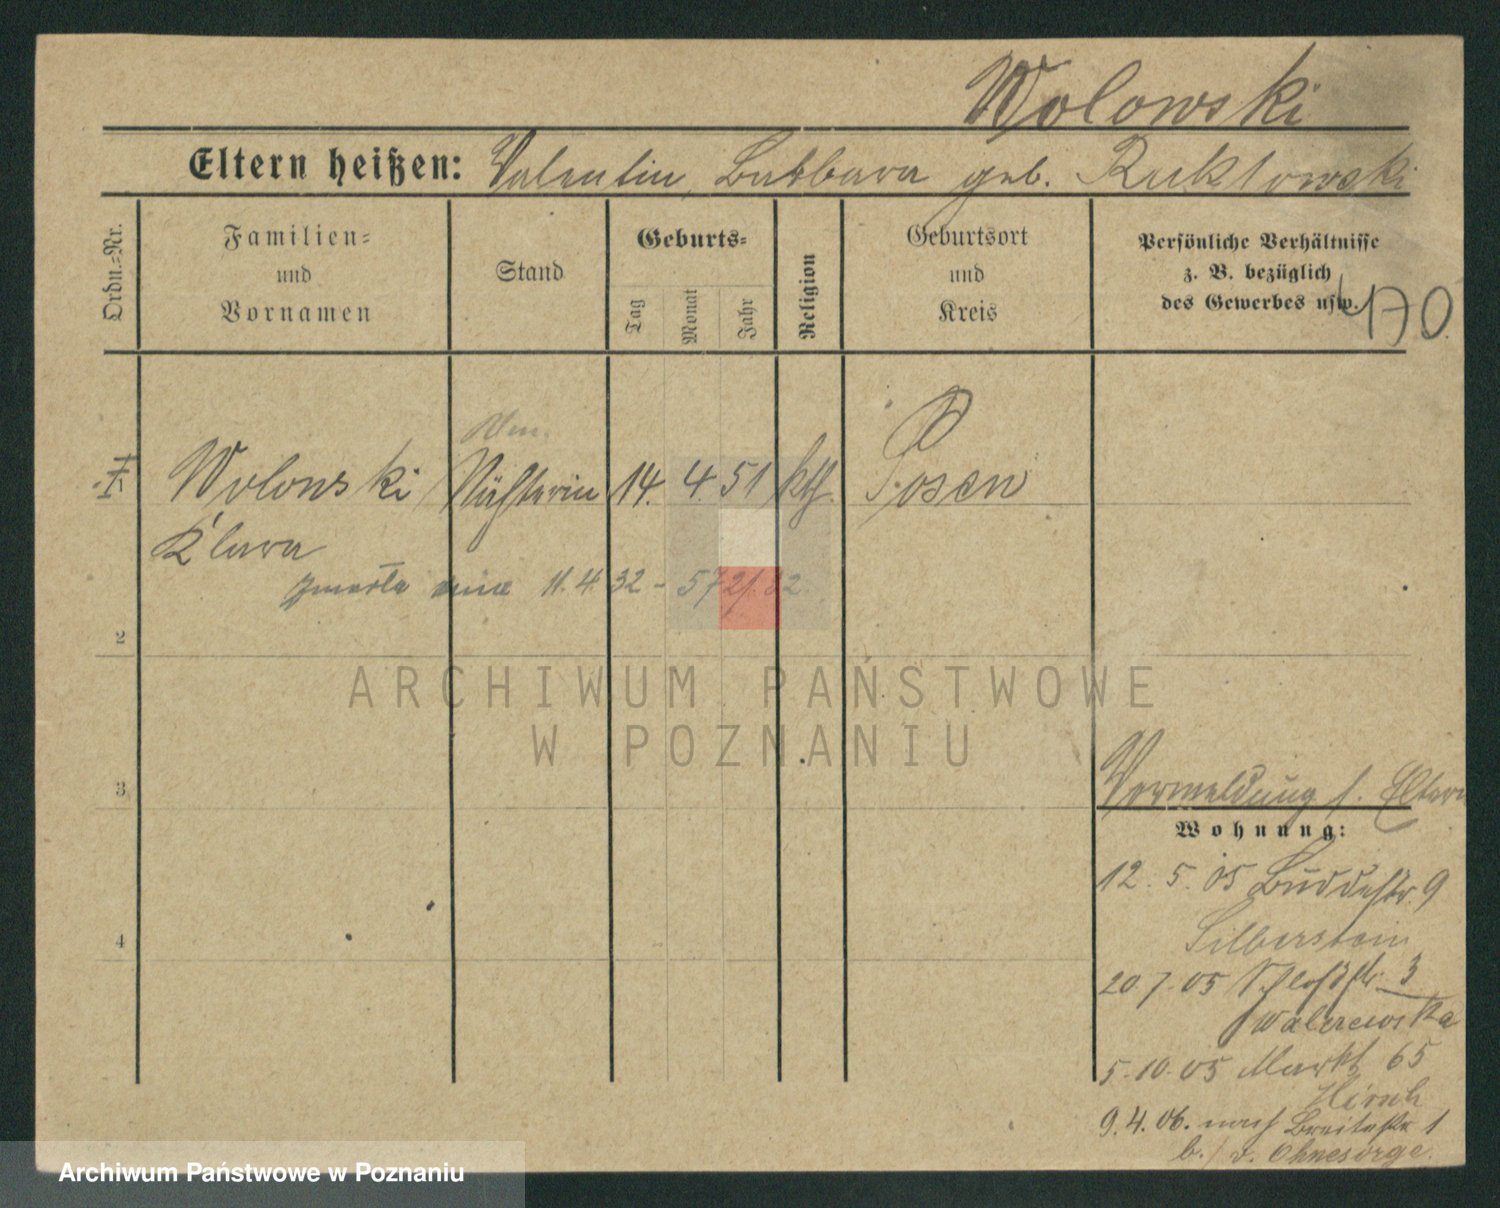 Wolowski
Eltern heißen: Valentin, Barbara geb.
Ordn.=Nr.
Familien=
und
Vornamen
Stand
Geburts=
Tag
Monat
Jahr
Religion
Geburtsort
und
Kreis
Persönliche Verhältnisse
z. B. bezüglich
des Gewerbes usw.
170.
Wolowski Nähterin 14. 4. 51 kth. Posen
Klara
zmarła dnia 11.4.32 -
2
3
4
Vermeldung s. Eltern
Wohnung:
12. 5. 05 Buddestr. 9
Silberstein
20.7.05 Schloßstr. 3
5.10.05 Markt 65
Hirsch
9.4.06. nach Breitestr. 1
b. Ohnesorge.
ARCHIWUM PAŃSTWOWE
W POZNANIU
Archiwum Państwowe w Poznaniu